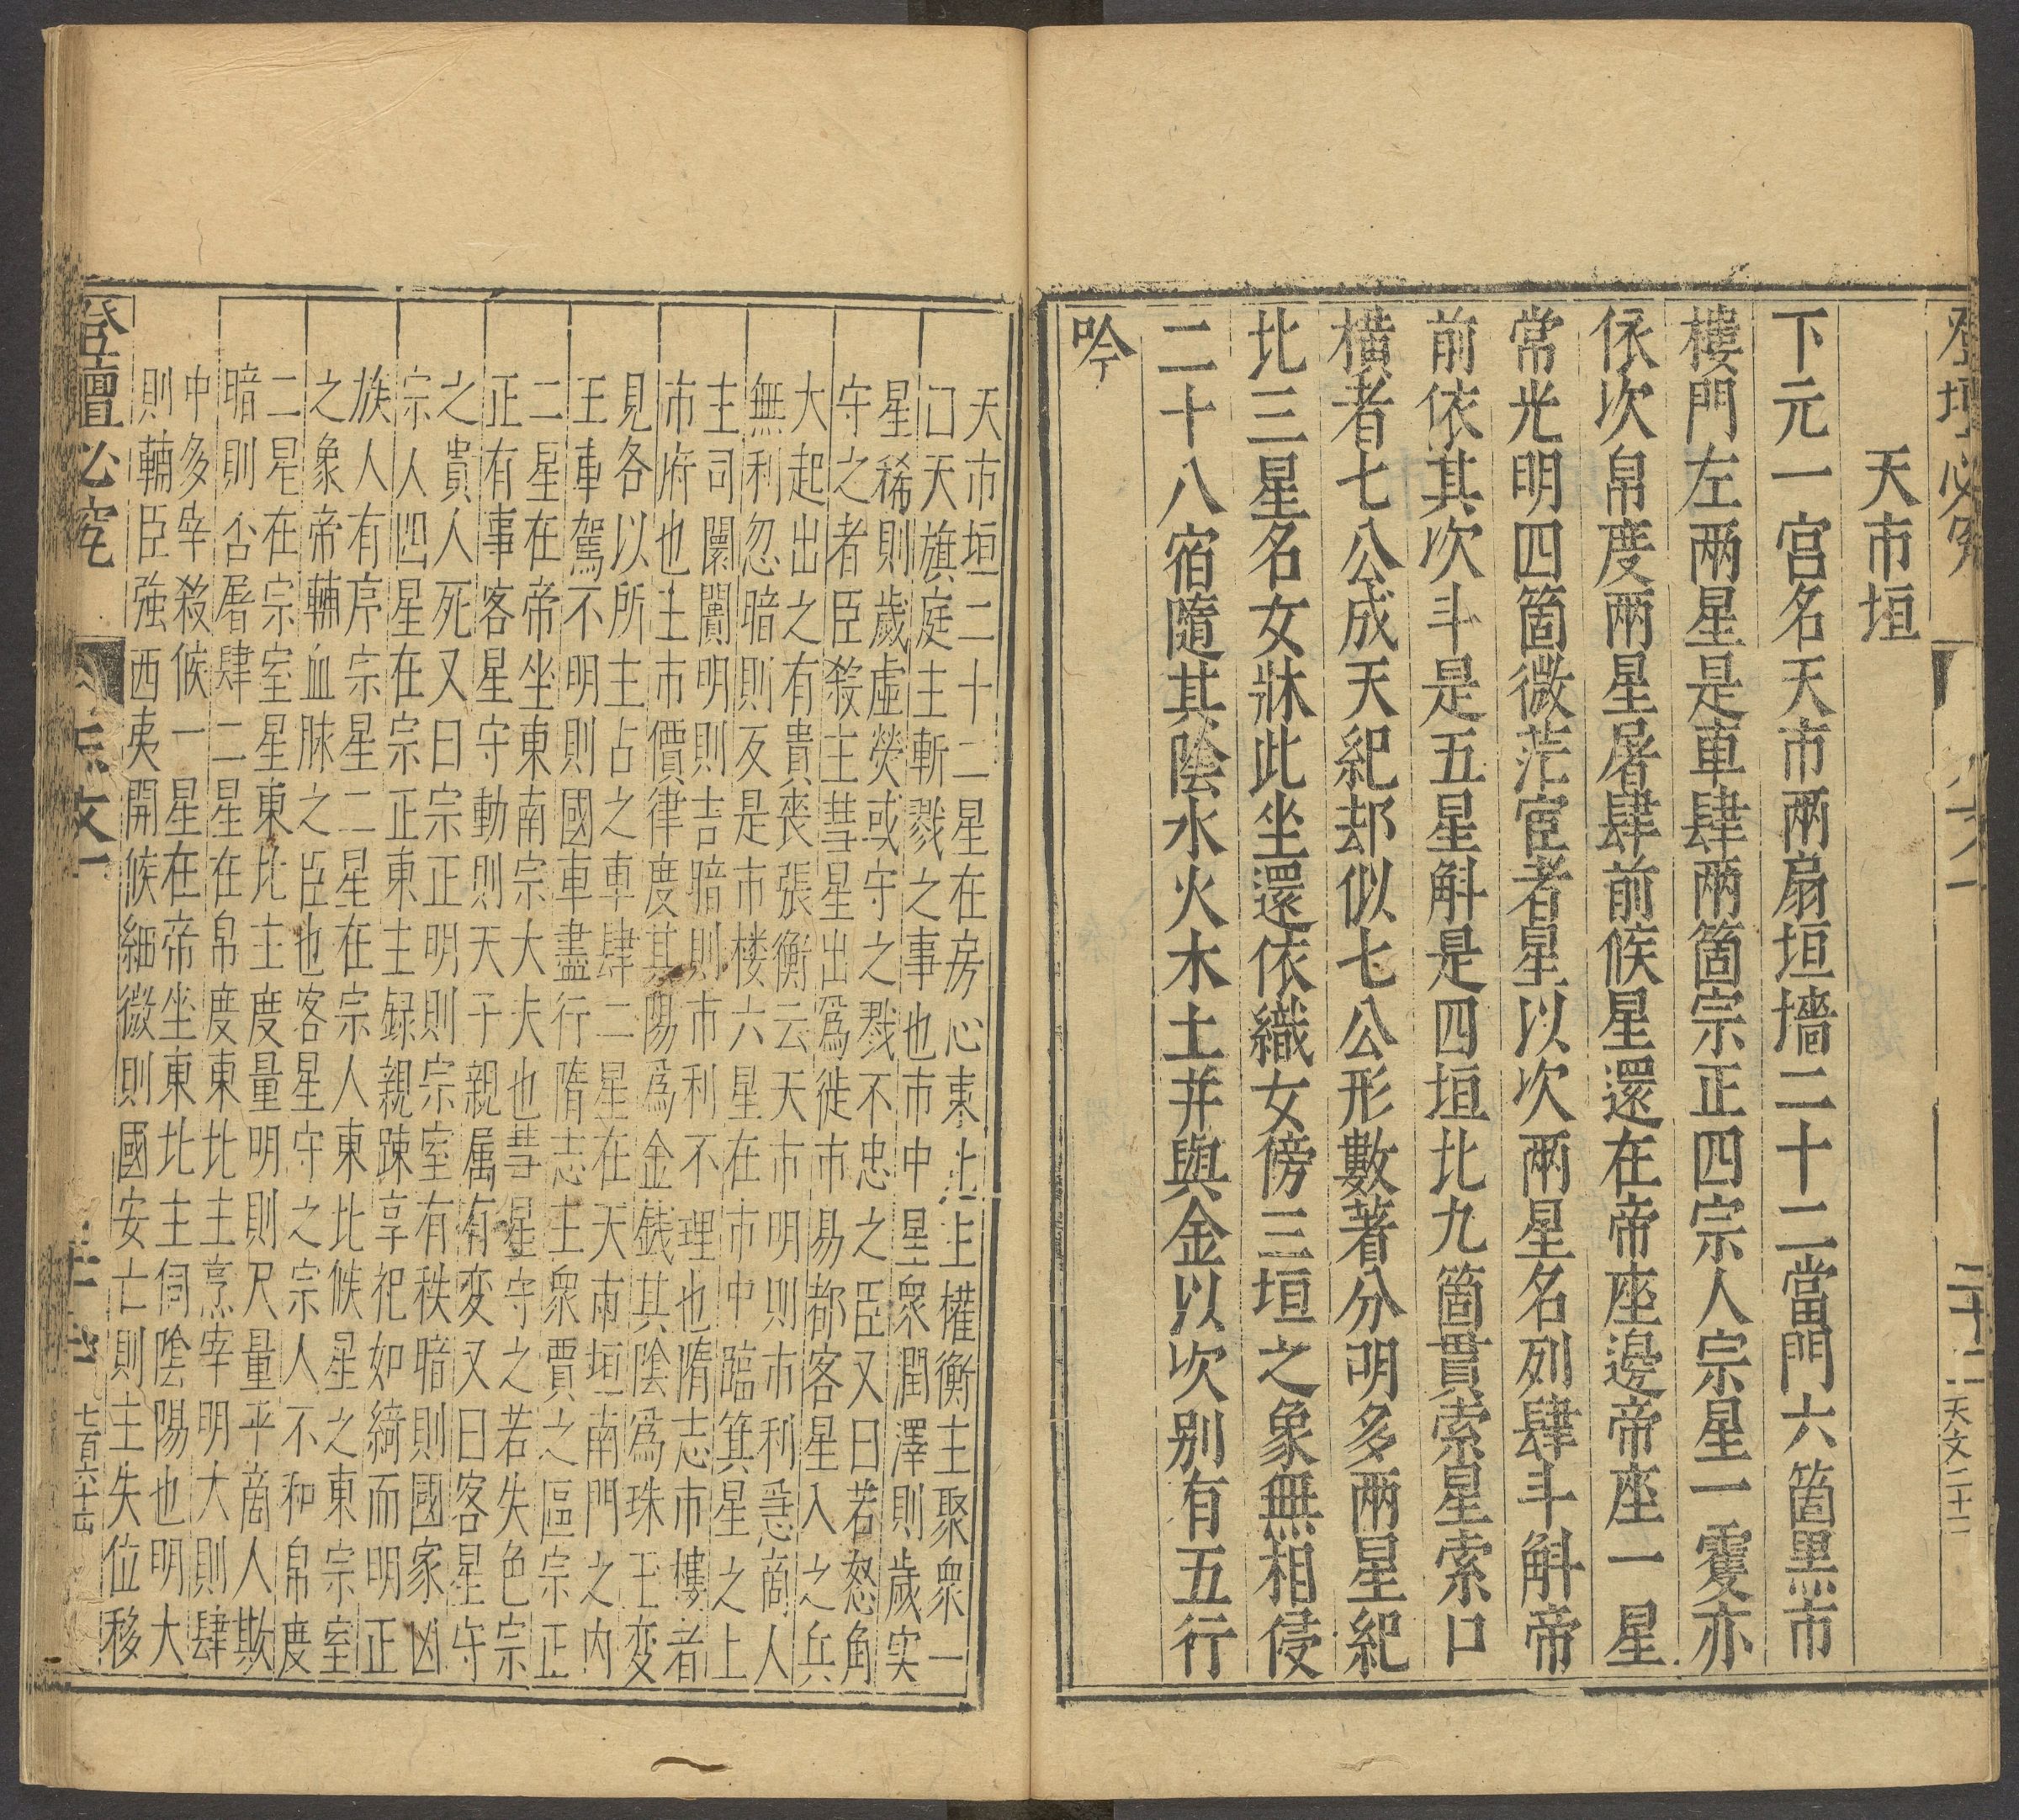 登壇必究
二十二
天文二十二
天市垣
下元一宫名天市兩扇垣墻二十二當門六箇黑市
樓門左兩星是車肆兩箇宗正四宗人宗星一雙亦
依次帛度兩星屠肆前候星還在帝座邊帝座一星
常光明四箇微茫宦者星以次兩星名列肆斗斛帝
前依其次斗是五星斛是四垣北九箇貫索星索口
橫者七公成天紀却似七公形數著分明多兩星紀
北三星名女牀此坐還依織女傍三垣之象無相侵
二十八宿隨其陰水火木土并與金以次别有五行
吟
天市垣二十二星在房心東北上權衡主聚衆一
口天旗庭主斬戮之事也市中星衆潤澤則歲实
星稀則歲虛熒或守之戮不忠之臣又曰若怒角
守之者臣殺主彗星出爲徙市易都客星入之兵
大起出之有貴喪張衡云天市明則市利悪商人
無利忽暗則反是市楼六星在市中臨箕星之上
主司闤闠明則吉暗則市利不理也隋志市樓者
市府也主市價律度其陽爲金銭其陰爲珠玉变
見各以所主占之車肆二星在天市垣南門之内
王車駕不明則國車盡行隋志主衆賈之區宗正
二星在帝坐東南宗大夫也彗星守之若失色宗
正有事客星守動則天子親属有变又曰客星守
之貴人死又曰宗正明則宗室有秩暗則國家凶
宗人四星在宗正東主録親踈享祀如綺而明正
族人有序宗星二星在宗人東北候星之東宗室
之象帝輔血脉之臣也客星守之宗人不和帛度
二星在宗室星東北主度量明則尺量平商人欺
暗則否屠肆二星在帛度東北主烹宰明大則肆
中多宰殺候一星在帝坐東北主伺陰陽也明大
則輔臣強西夷開候細微則國安亡則主失位移
登壇必究
天文一